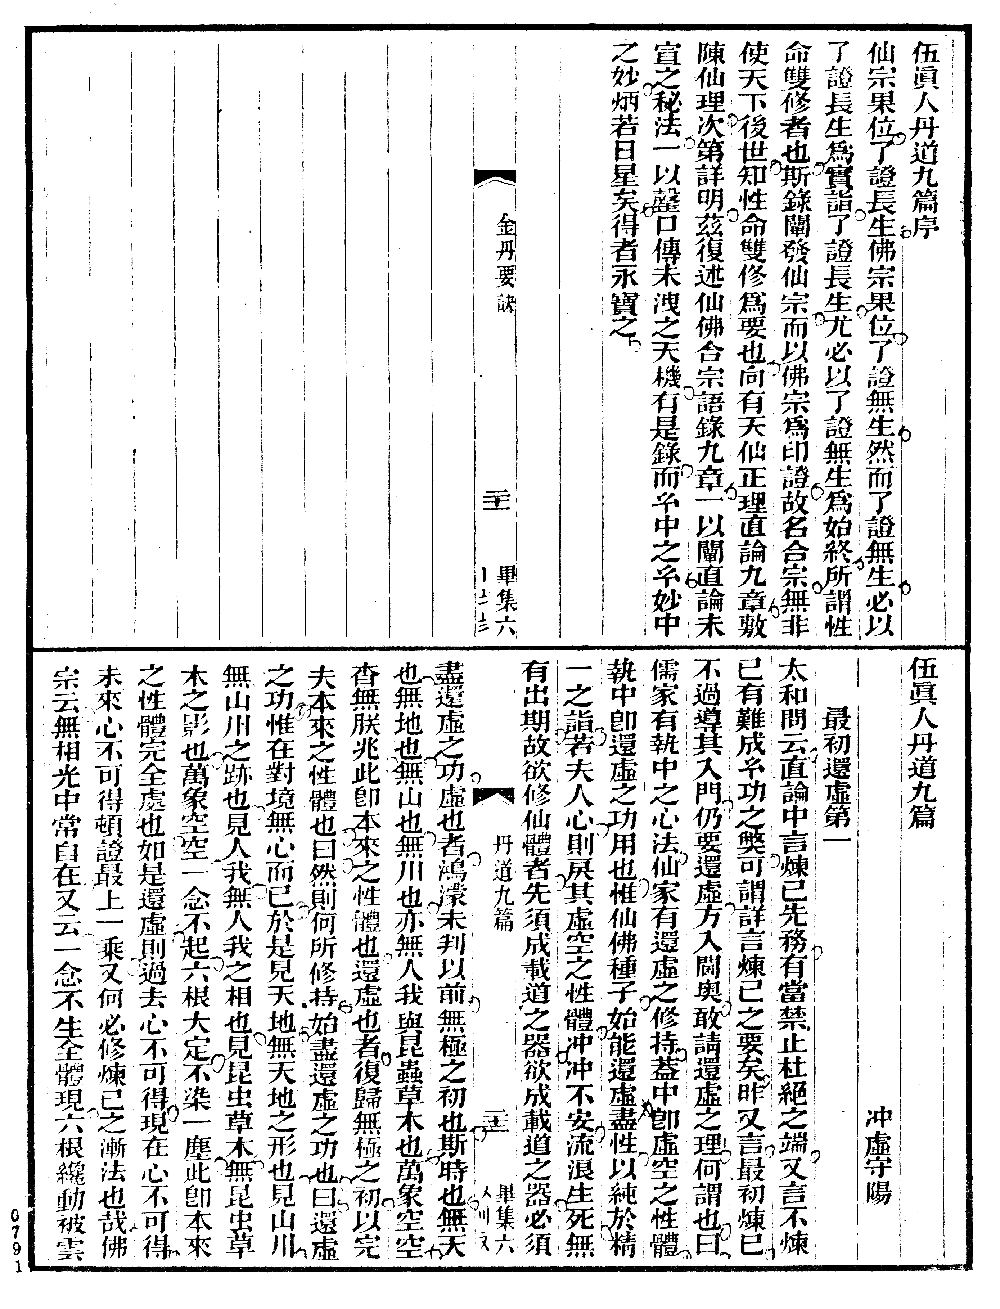 伍眞人丹道九篇序
仙宗果位了證長生佛宗果位了證無生然而了證無生必以
了證長生爲實詣了證長生尤必以了證無生爲始終所謂性
命雙修者也斯錄闡發仙宗而以佛宗爲印證故名合宗無非
使天下後世知性命雙修爲要也向有天仙正理直論九章敷
陳仙理次第詳明茲復述仙佛合宗語錄九章一以闡直論未
宣之秘法一以罄口傳未洩之天機有是錄而玄中之玄妙中
之妙炳若日星矣得者永寶之
金丹要訣
二十一
畢集六
伍眞人丹道九篇
冲虛守陽
最初還虛第一
太和問云直論中言煉己先務有當禁止杜絕之端又言不煉
己有難成玄功之弊可謂詳言煉己之要矣昨又言最初煉己
不過導其入門仍要還虛方入閫奧敢請還虛之理何謂也曰
儒家有執中之心法仙家有還虛之修持蓋中卽虛空之性體
執中卽還虛之功用也惟仙佛種子始能還虛盡性以純於精
一之詣若夫人心則戾其虛空之性體冲冲不安流浪生死無
有出期故欲修仙體者先須成載道之器欲成載道之器必須
丹道九篇
二十二
畢集六
盡還虛之功虛也者鴻濛未判以前無極之初也斯時也無天
也無地也無山也無川也亦無人我與昆蟲草木也萬象空空
杳無朕兆此卽本來之性體也還虛也者復歸無極之初以完
夫本來之性體也曰然則何所修持始盡還虛之功也曰還虛
之功惟在對境無心而已於是見天地無天地之形也見山川
無山川之跡也見人我無人我之相也見昆虫草木無昆虫草
木之影也萬象空空一念不起六根大定不染一塵此卽本來
之性體完全處也如是還虛則過去心不可得現在心不可得
未來心不可得頓證最上一乘又何必修煉己之漸法也哉佛
宗云無相光中常自在又云一念不生全體現六根纔動被雲
0791